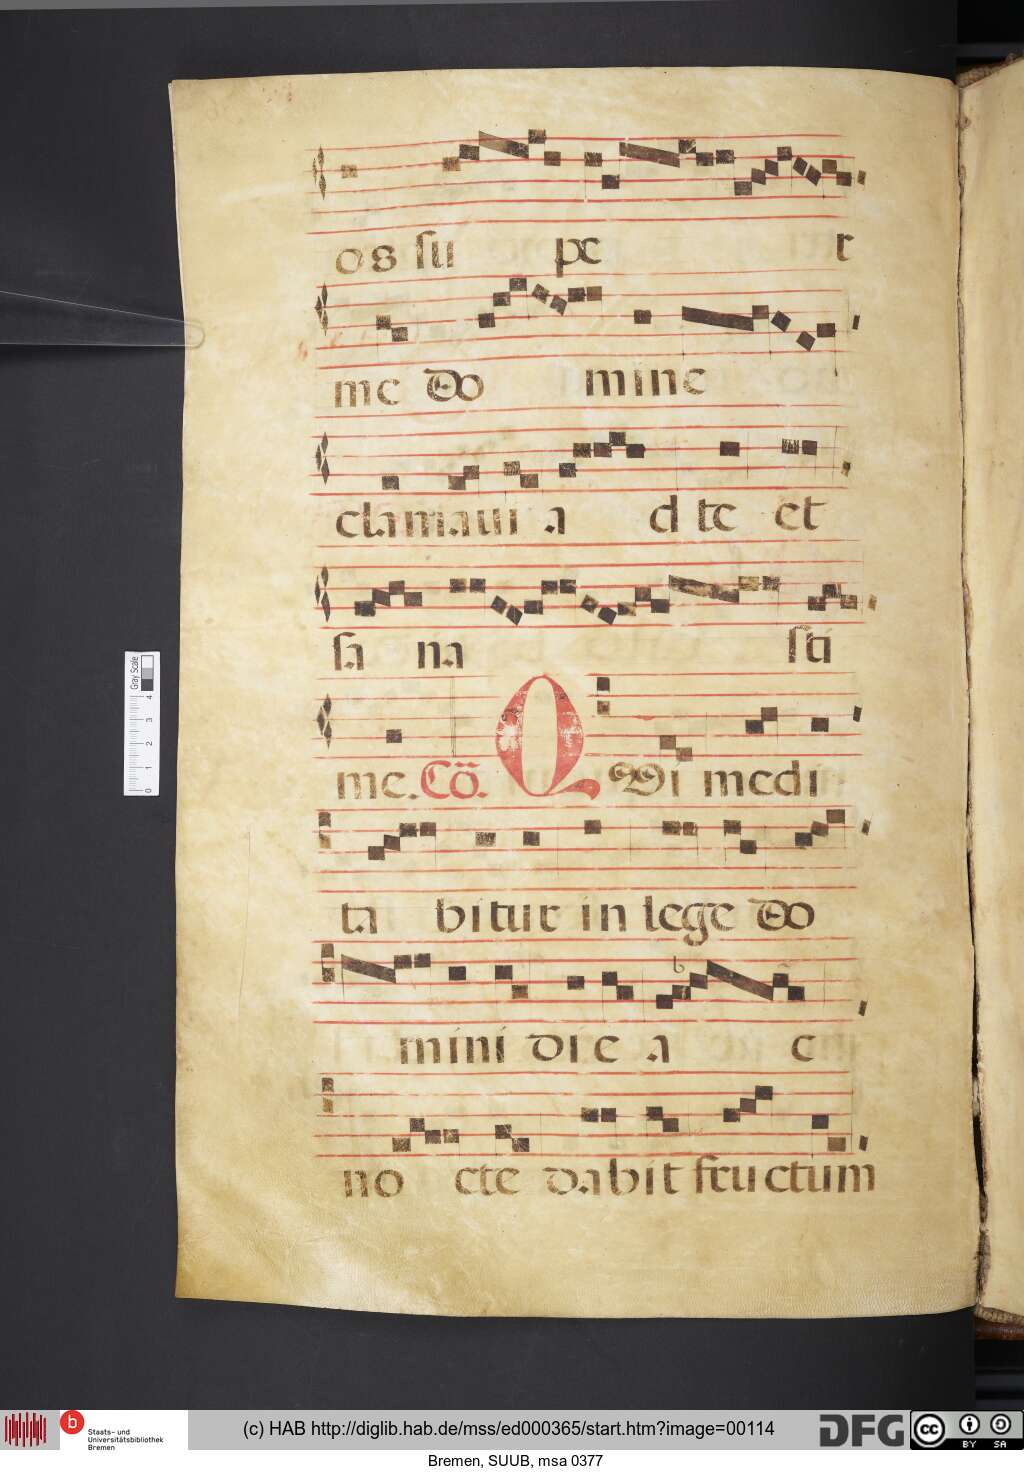 os su pe r
me do mine
clamaui a d te et
sa na sti
me. Cō. Qui medi
ta bitur in lege do
mini die a c
no cte dabit fructum
Gray Scale
0 1 2 3 4
b
Staats- und
Universitätsbibliothek
Bremen
(c) HAB http://diglib.hab.de/mss/ed000365/start.htm?image=00114
DFG
cc BY SA
Bremen, SUUB, msa 0377